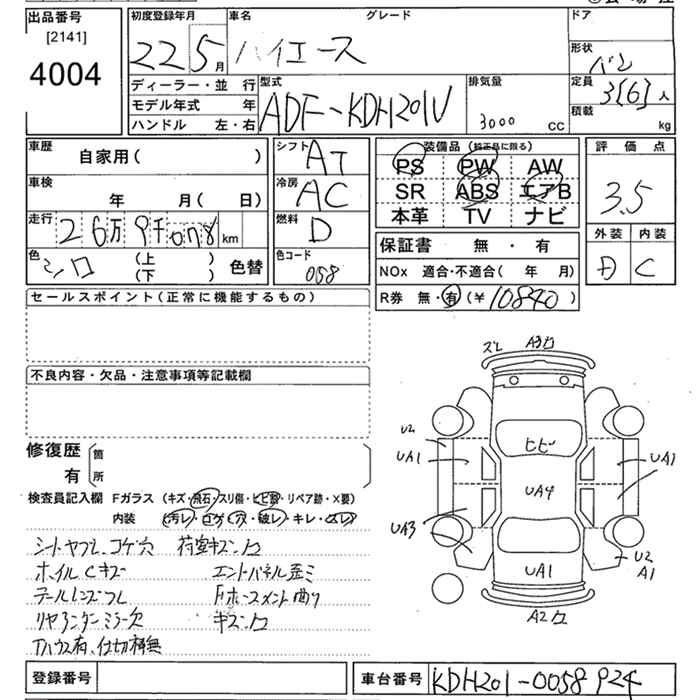 出品番号
[2141]
4004
初度登録年月
22 5月
車名
ハイエース
グレード
ドア
形状
バン
ディーラー・並 行
モデル年式 年
ハンドル 左・右
型式
ADF-KDH201V
排気量
3000 CC
定員
3[6]人
積載
kg
車歴
自家用( )
シフト
AT
車検
年 月( 日)
冷房
AC
走行
26万9千078km
燃料
D
色
シロ
(上 )
(下 )
色替
色コード
058
装備品(純正品に限る)
PS PW AW
SR ABS エアB
本革 TV ナビ
保証書 無・有
NOx 適合・不適合( 年 月)
R券 無・有(¥10840)
評価点
3.5
外装 内装
D C
セールスポイント(正常に機能するもの)
不良内容・欠品・注意事項等記載欄
修復歴
有
箇
所
検査員記入欄 Fガラス (キズ・飛石・スリ傷・ヒビ割・リペア跡・×要)
内装 (汚レ・コゲ・穴・破レ・キレ・ムレ)
シートヤブレ、コゲ穴 荷室キズ、凹
ホイルCキズ エンドパネル歪ミ
テールレンズワレ Fホースメント曲り
リヤアンダーミラー欠 キズ、凹
Tハウス有、仕切棒無
ズレ A3凹
U2
UA1
ヒビ
UA1
UA4
UA3
UA1
U2
A1
A2凹
登録番号
車台番号
KDH201-0058924